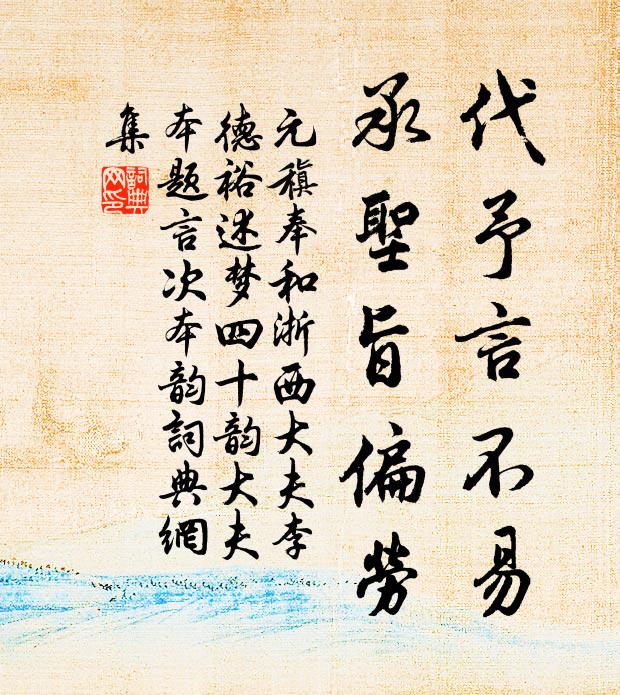 代予言不易
承聖旨偏勞
元稹奉和浙西大夫李
德裕述梦四十韵大夫
本題言次本韵詞典網
集
詞典網印